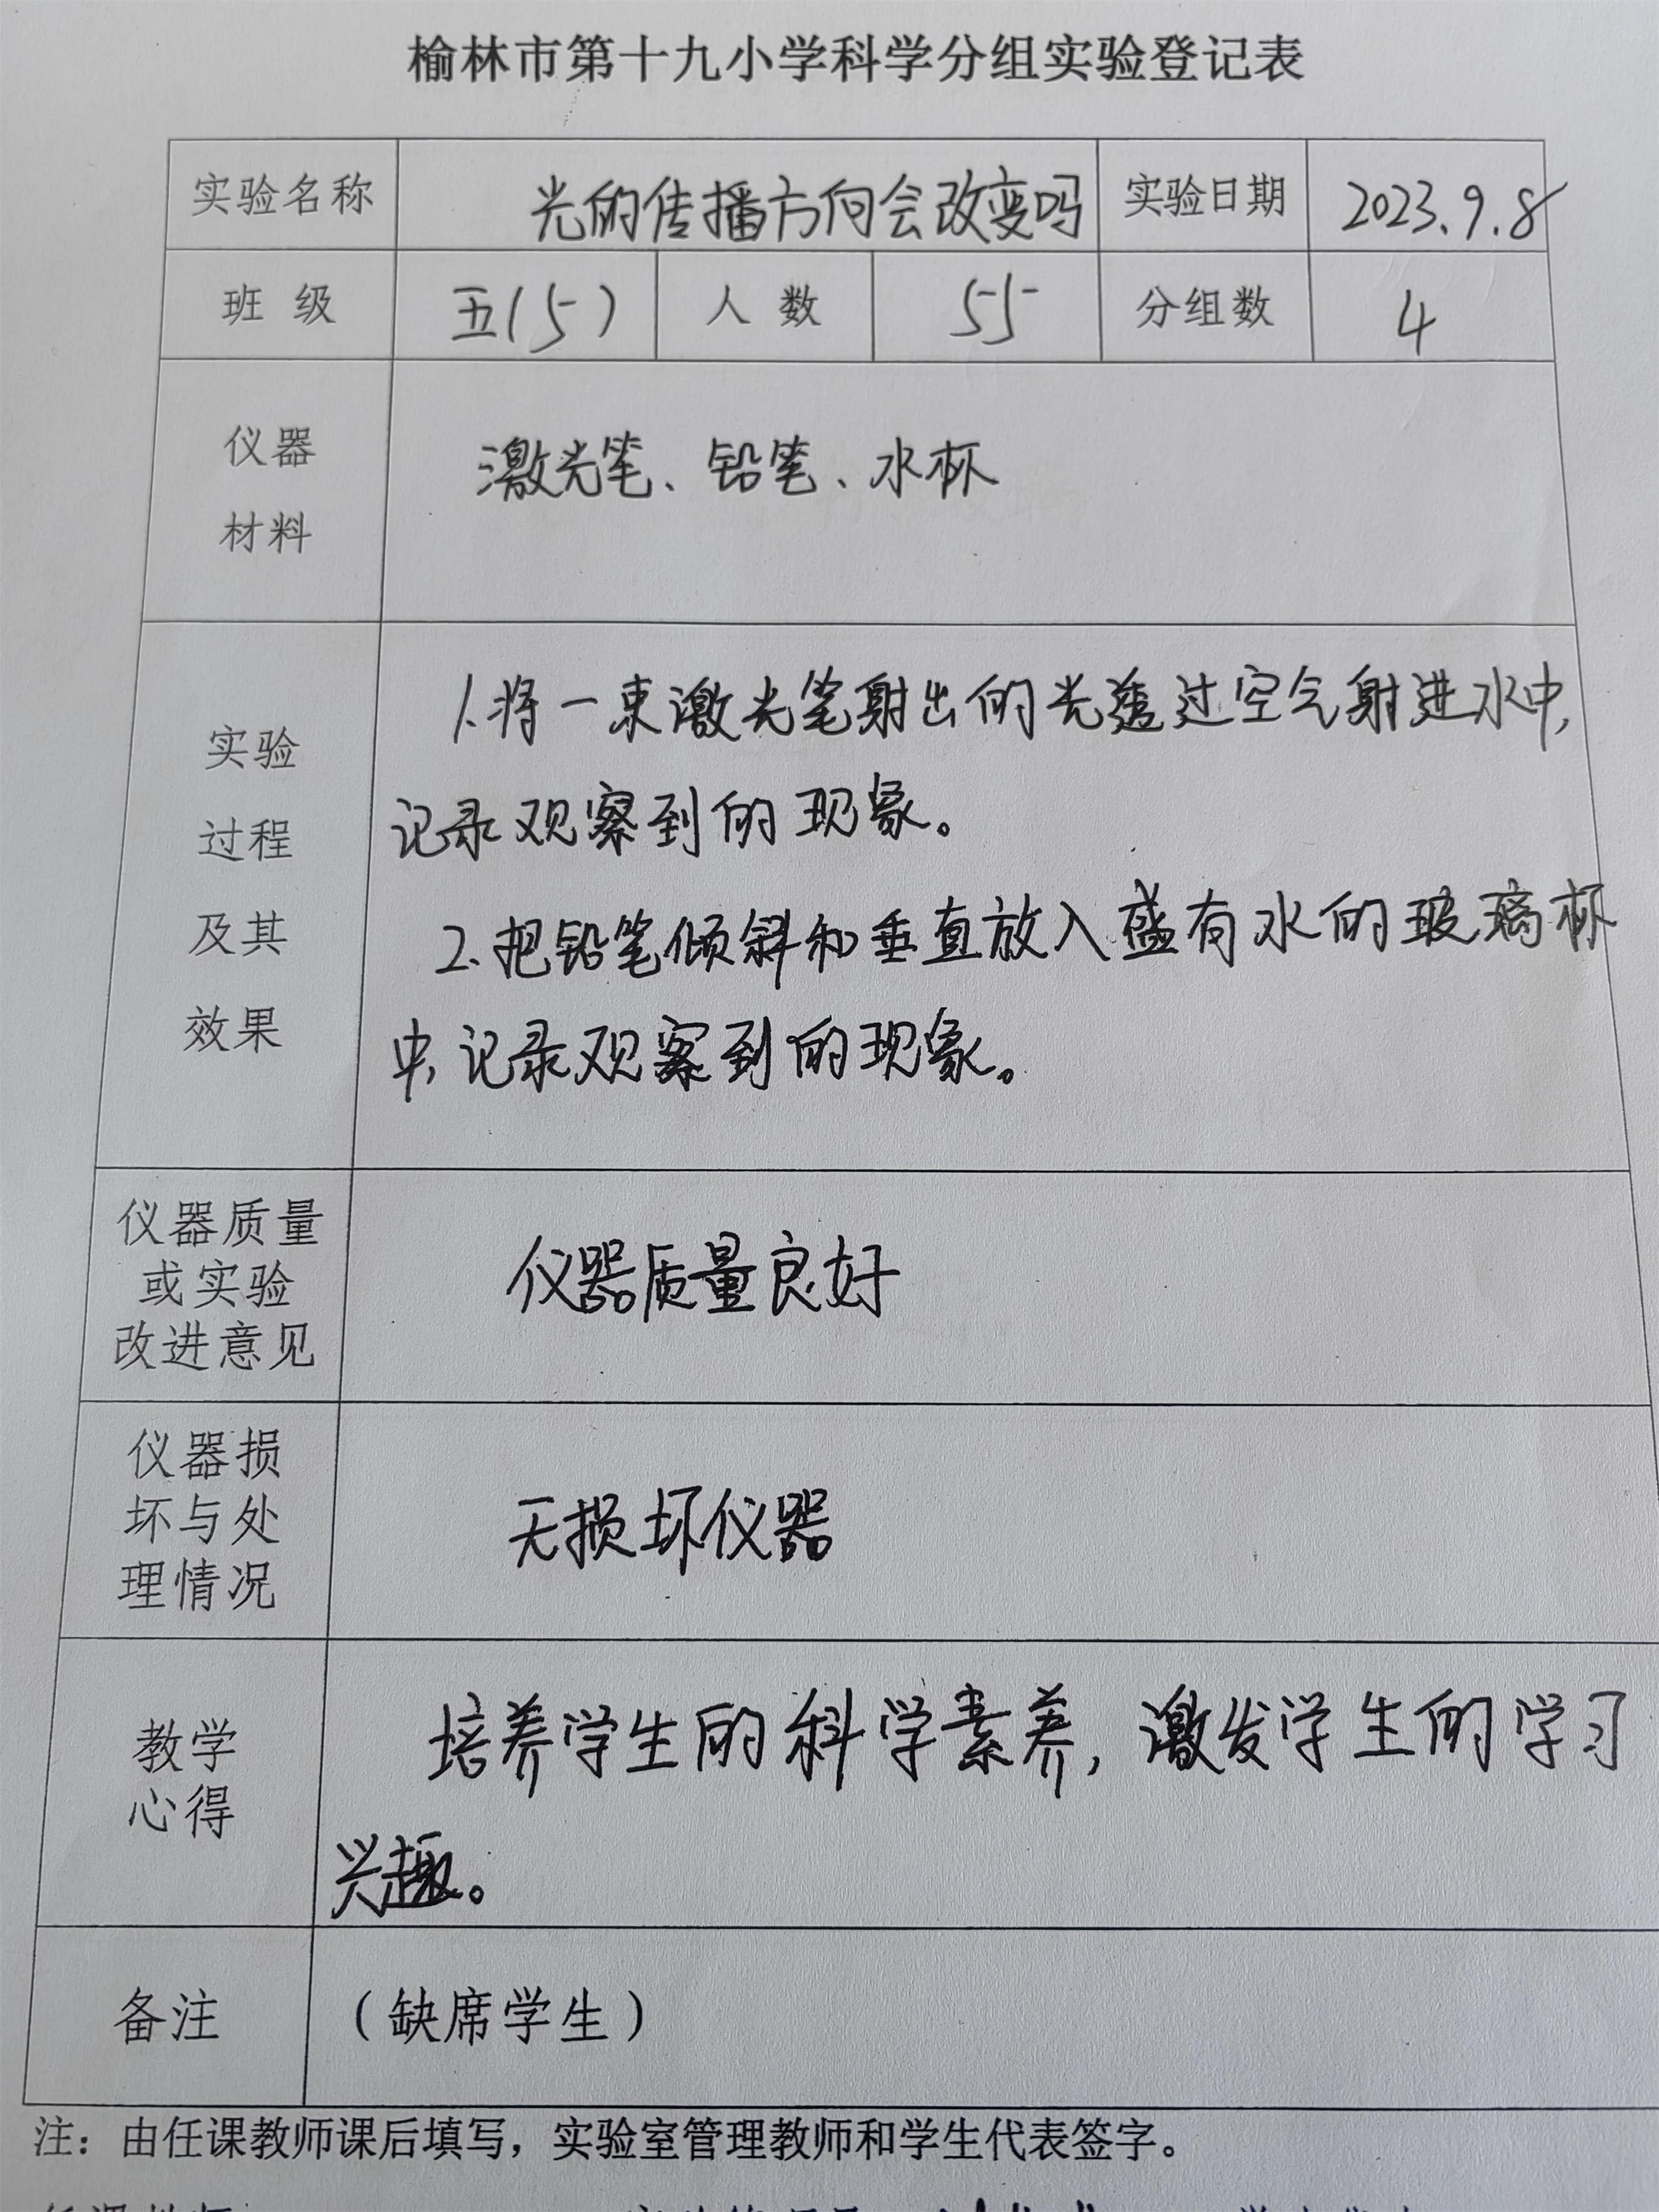 榆林市第十九小学科学分组实验登记表
实验名称 光的传播方向会改变吗 实验日期 2023.9.8
班 级 五(5) 人 数 55 分组数 4
仪器
材料
激光笔、铅笔、水杯
实验
过程
及其
效果
1.将一束激光笔射出的光透过空气射进水中,
记录观察到的现象。
2.把铅笔倾斜和垂直放入盛有水的玻璃杯
中,记录观察到的现象。
仪器质量
或实验
改进意见
仪器质量良好
仪器损
坏与处
理情况
无损坏仪器
教学
心得
培养学生的科学素养,激发学生的学习
兴趣。
备注 (缺席学生)
注：由任课教师课后填写，实验室管理教师和学生代表签字。